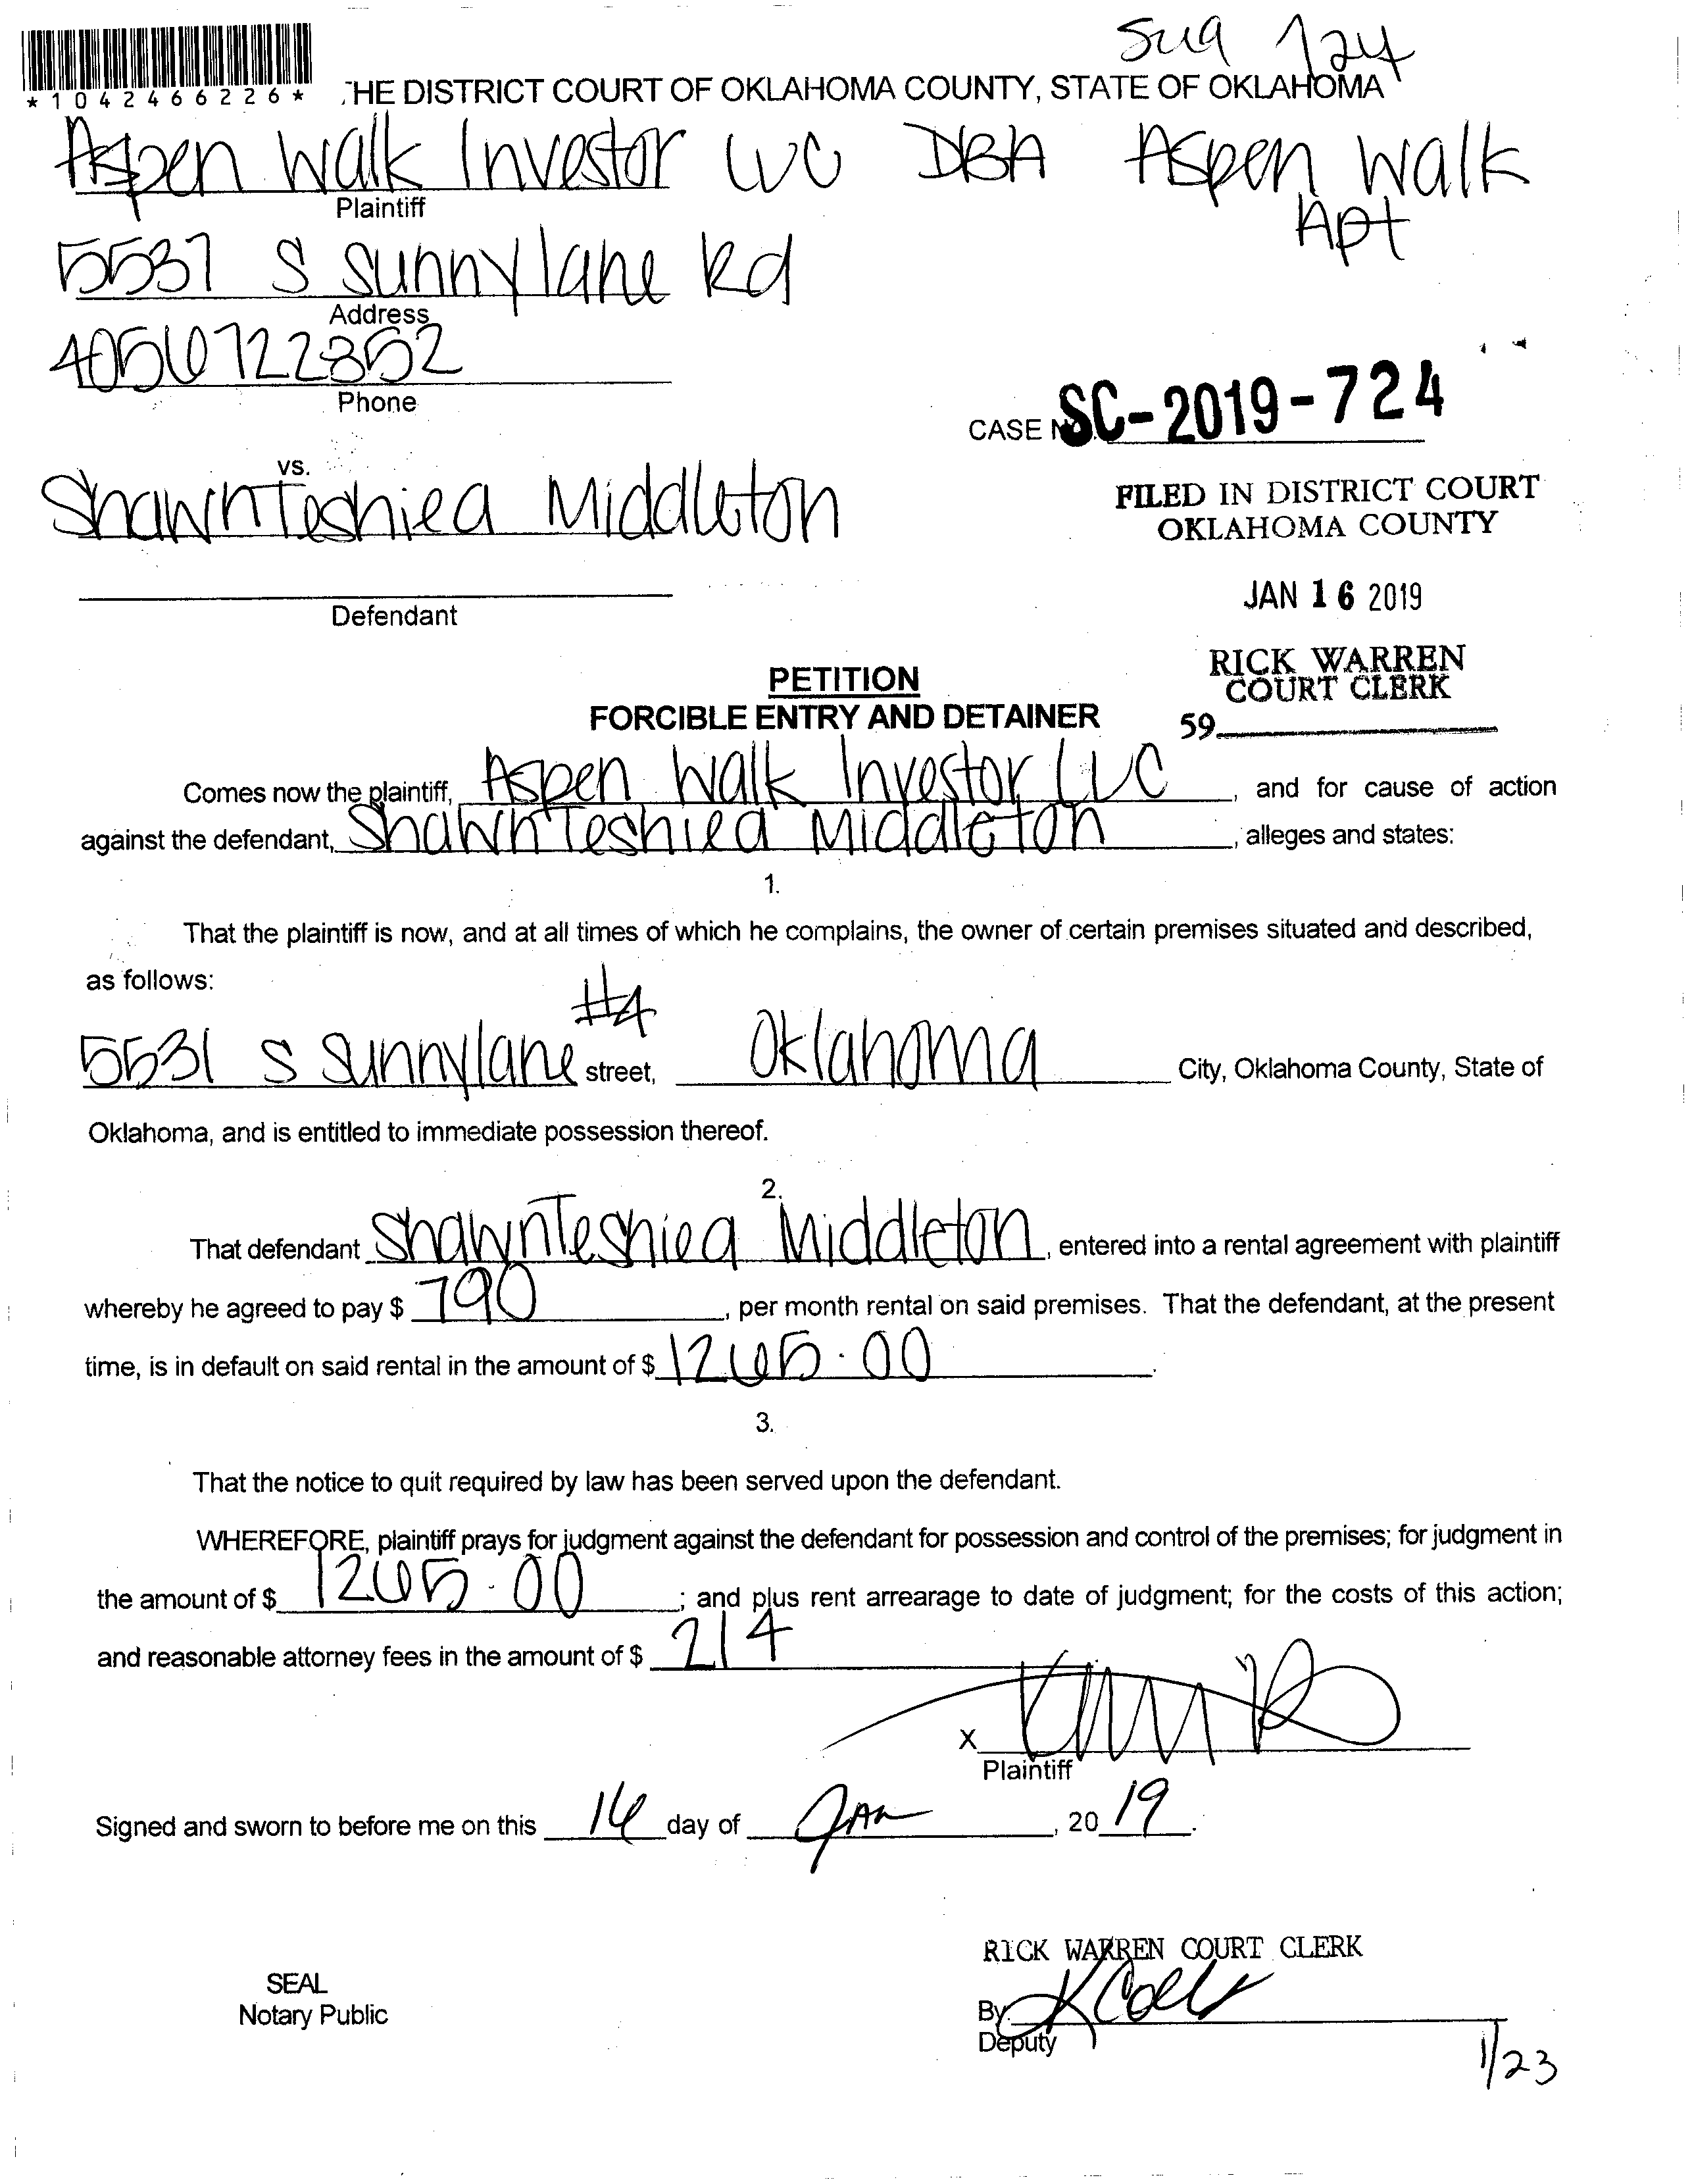 Sug 124
*1042466226*
THE DISTRICT COURT OF OKLAHOMA COUNTY, STATE OF OKLAHOMA
Aspen Walk Investor LLC DBA Aspen Walk
Apt
Plaintiff
5537 S Sunnylane Rd
Address
4056722352
Phone
CASE NO. SC-2019-724
vs.
ShawnTeshiea Middleton
FILED IN DISTRICT COURT
OKLAHOMA COUNTY
JAN 16 2019
Defendant
RICK WARREN
COURT CLERK
59
PETITION
FORCIBLE ENTRY AND DETAINER
Comes now the plaintiff, Aspen Walk Investor LLC, and for cause of action
against the defendant, ShawnTeshiea Middleton, alleges and states:
1.
That the plaintiff is now, and at all times of which he complains, the owner of certain premises situated and described,
as follows:
#4
5531 S Sunnylane street, Oklahoma City, Oklahoma County, State of
Oklahoma, and is entitled to immediate possession thereof.
2.
That defendant ShawnTeshiea Middleton, entered into a rental agreement with plaintiff
whereby he agreed to pay $ 790, per month rental on said premises. That the defendant, at the present
time, is in default on said rental in the amount of $ 1265.00.
3.
That the notice to quit required by law has been served upon the defendant.
WHEREFORE, plaintiff prays for judgment against the defendant for possession and control of the premises; for judgment in
the amount of $ 1265.00; and plus rent arrearage to date of judgment; for the costs of this action;
and reasonable attorney fees in the amount of $ 214
X
Plaintiff
Signed and sworn to before me on this 16 day of Jan, 2019.
RICK WARREN COURT CLERK
SEAL
Notary Public
By
Deputy
1/23